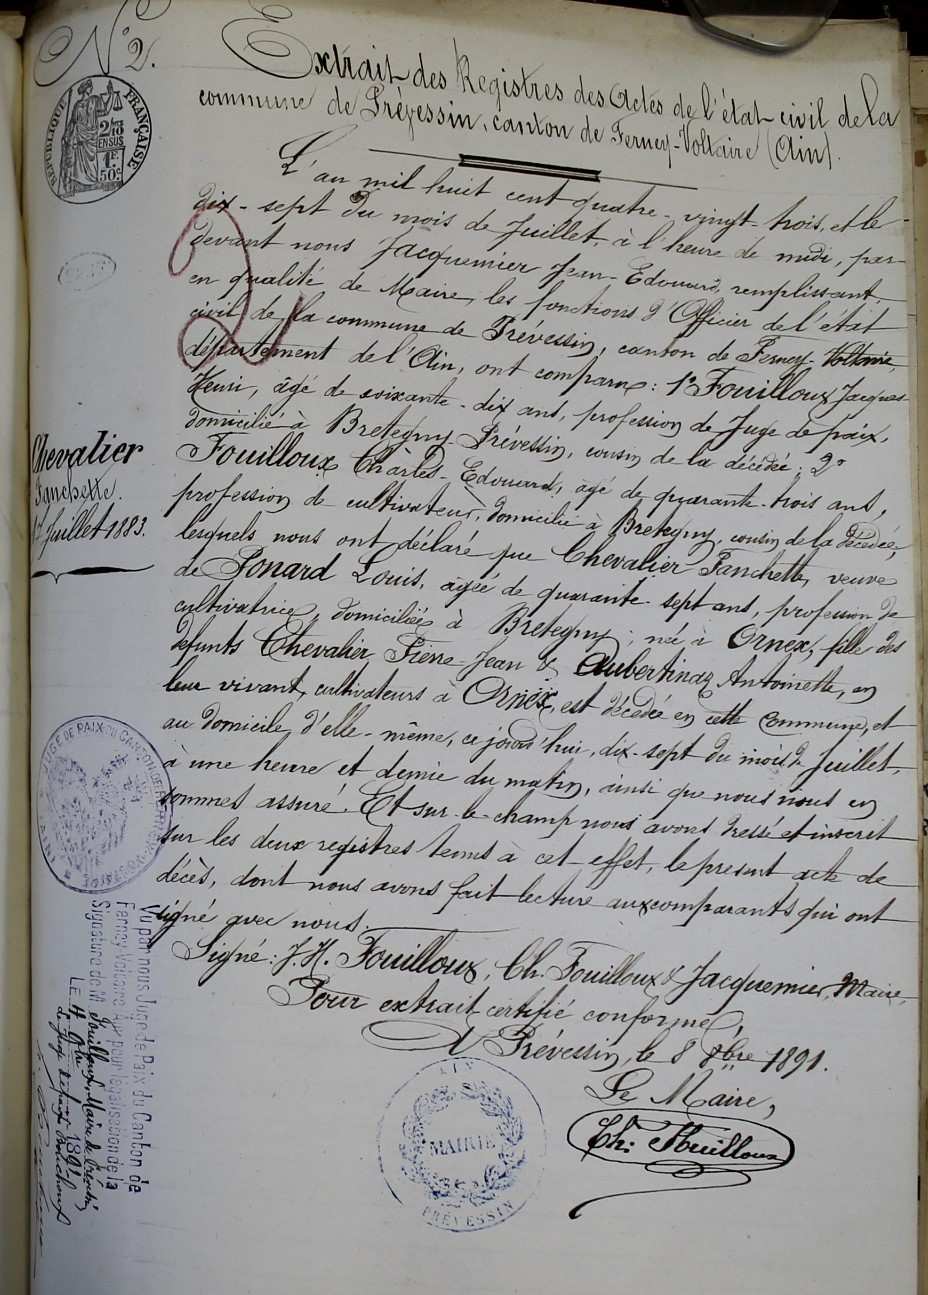 N° 2.
Extrait des Registres des Actes de l'état-civil de la
commune de Prévessin, canton de Ferney-Voltaire (Ain).
RÉPUBLIQUE FRANÇAISE
2/10
EN SUS
1F.
50c
L'an mil huit cent quatre-vingt-trois, et le
dix-sept du mois de Juillet, à l'heure de midi, par-
devant nous Jacquemier Jean-Edouard, remplissant,
en qualité de Maire, les fonctions d'Officier de l'état
civil de la commune de Prévessin, canton de Ferney-Voltaire,
département de l'Ain, ont comparu : 1° Fouilloux Jacques
Henri, âgé de soixante-dix ans, profession de Juge de paix,
domicilié à Bretegny Prévessin, cousin de la décédée ; 2°
Fouilloux Charles-Edouard, âgé de quarante-trois ans,
profession de cultivateur, domicilié à Bretegny, cousin de la décédée,
lesquels nous ont déclaré que Chevalier Fanchette, veuve
de Ponard Louis, âgée de quarante-sept ans, profession de
cultivatrice, domiciliée à Bretegny ; née à Ornex, fille des
défunts Chevalier Pierre-Jean & Aubertinaz Antoinette, en
leur vivant, cultivateurs à Ornex, est décédée en cette commune, et
au domicile d'elle-même, ce jourd'hui, dix-sept du mois de Juillet,
à une heure et demie du matin, ainsi que nous nous en
sommes assuré. Et sur-le-champ nous avons dressé et inscrit
sur les deux registres tenus à cet effet, le présent acte de
décès, dont nous avons fait lecture aux comparants qui ont
signé avec nous.
Signé : J. H. Fouilloux, Ch. Fouilloux & Jacquemier, Maire,
Pour extrait certifié conforme,
A Prévessin, le 8 8bre 1891.
Le Maire,
Ch. Fouilloux
MAIRIE
AIN
PRÉVESSIN
Chevalier
Fanchette.
17 Juillet 1883.
2
JUGE DE PAIX DU CANTON DE FERNEY-VOLTAIRE
Vu par nous Juge de Paix du Canton de
Ferney Voltaire pour légalisation de la
Signature de M Fouilloux, Maire de Prévessin
LE 1891